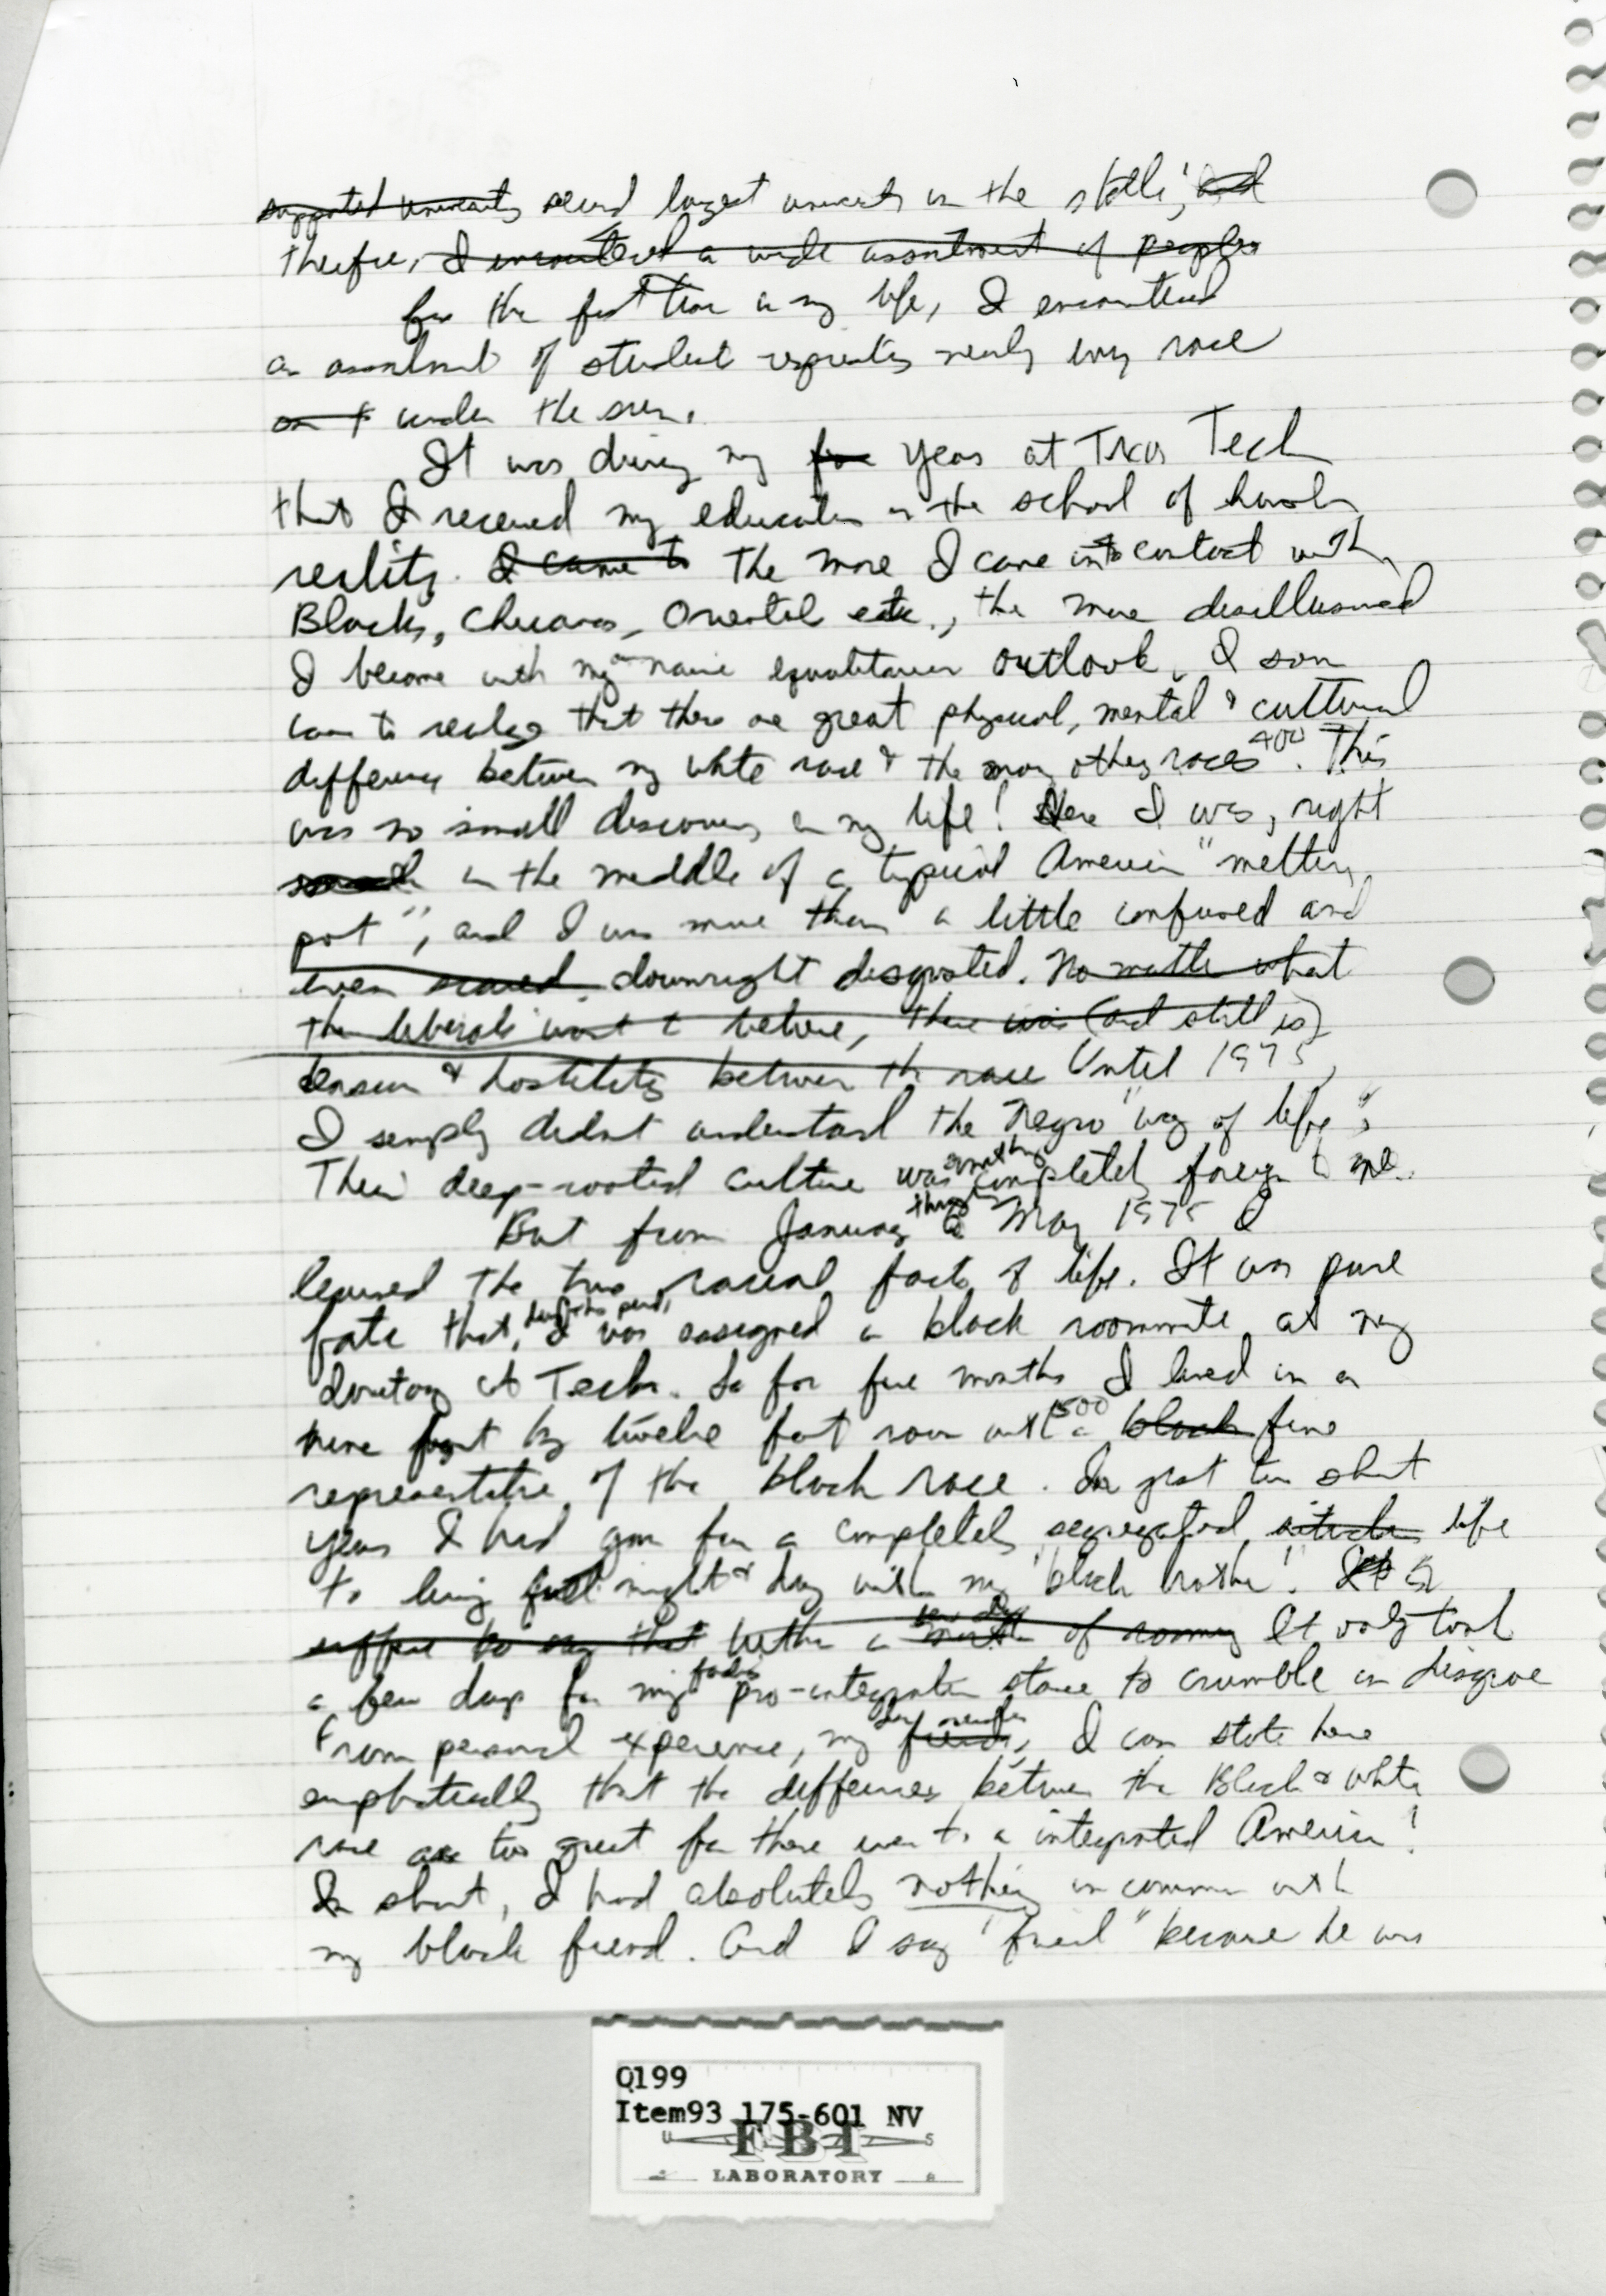 supported university second largest university in the state, and
therefore, I encountered a wide assortment of peoples
for the first time in my life, I encountered
an assortment of student representing nearly every race
on t under the sun.
It was during my years at Texas Tech
that I received my education in the school of harsh
reality. I came to The more I came into contact with
Blacks, Chicanos, Oriental etc., the more disillusioned
I became with my naive equalitarian outlook. I soon
came to realize that there are great physical, mental & cultural
differences between my white race & the many other races 400. This
was no small discovery in my life! Here I was, right
in the middle of a typical American "melting
pot", and I was more than a little confused and
even scared. downright disgusted. No matter what
the liberals want to believe, there was (and still is)
tension & hostility between the race Until 1975,
I simply didnt understand the Negro "way of life".
Their deep-rooted culture was something completely foreign to me.
But from January through to May 1975 I
learned the true racial facts of life. It was pure
fate that, during this period, I was assigned a black roommate at my
dormitory at Tech. So for five months I lived in a
nine foot by twelve foot room with a 500 black fine
representative of the black race. In just two short
years I had gone from a completely segregated situation life
to living night & day with my "black brother".
suffice to say that within a month of rooming It only took
a few days for my pro-integration stance to crumble in disgrace
From personal experience, my friends, I can state here
emphatically that the differences between the Black & white
race are too great for there ever to a integrated America!
In short, I had absolutely nothing in common with
my black friend. And I say "friend" because he was
Q199
Item93 175-601 NV
FBI
LABORATORY